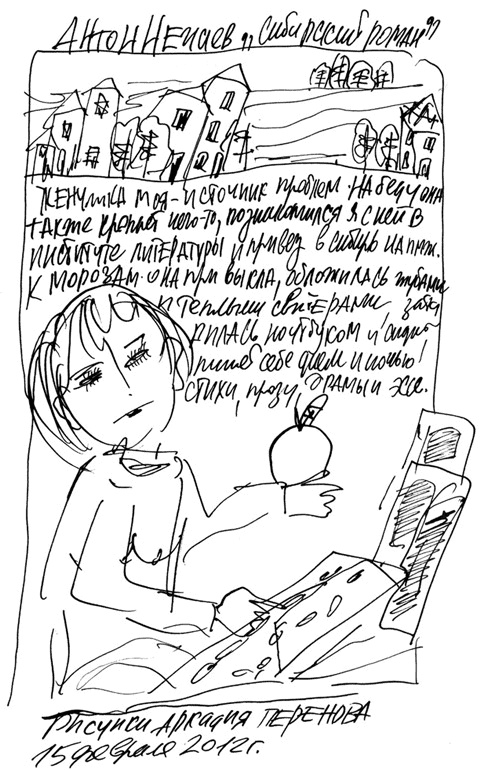 Антон Нечаев „Сибирский роман"
Женушка моя - источник проблем. На беду она
также кропает чего-то, познакомился я с ней в
институте литературы и привез в Сибирь напрок.
К морозам она привыкла, обложилась шубами
и теплыми свитерами,
рилась ноутбуком и сидит
пишет себе днем и ночью!
стихи, прозу, драмы и эссе.
Рисунки Аркадия Перенова
15 февраля 2012 г.